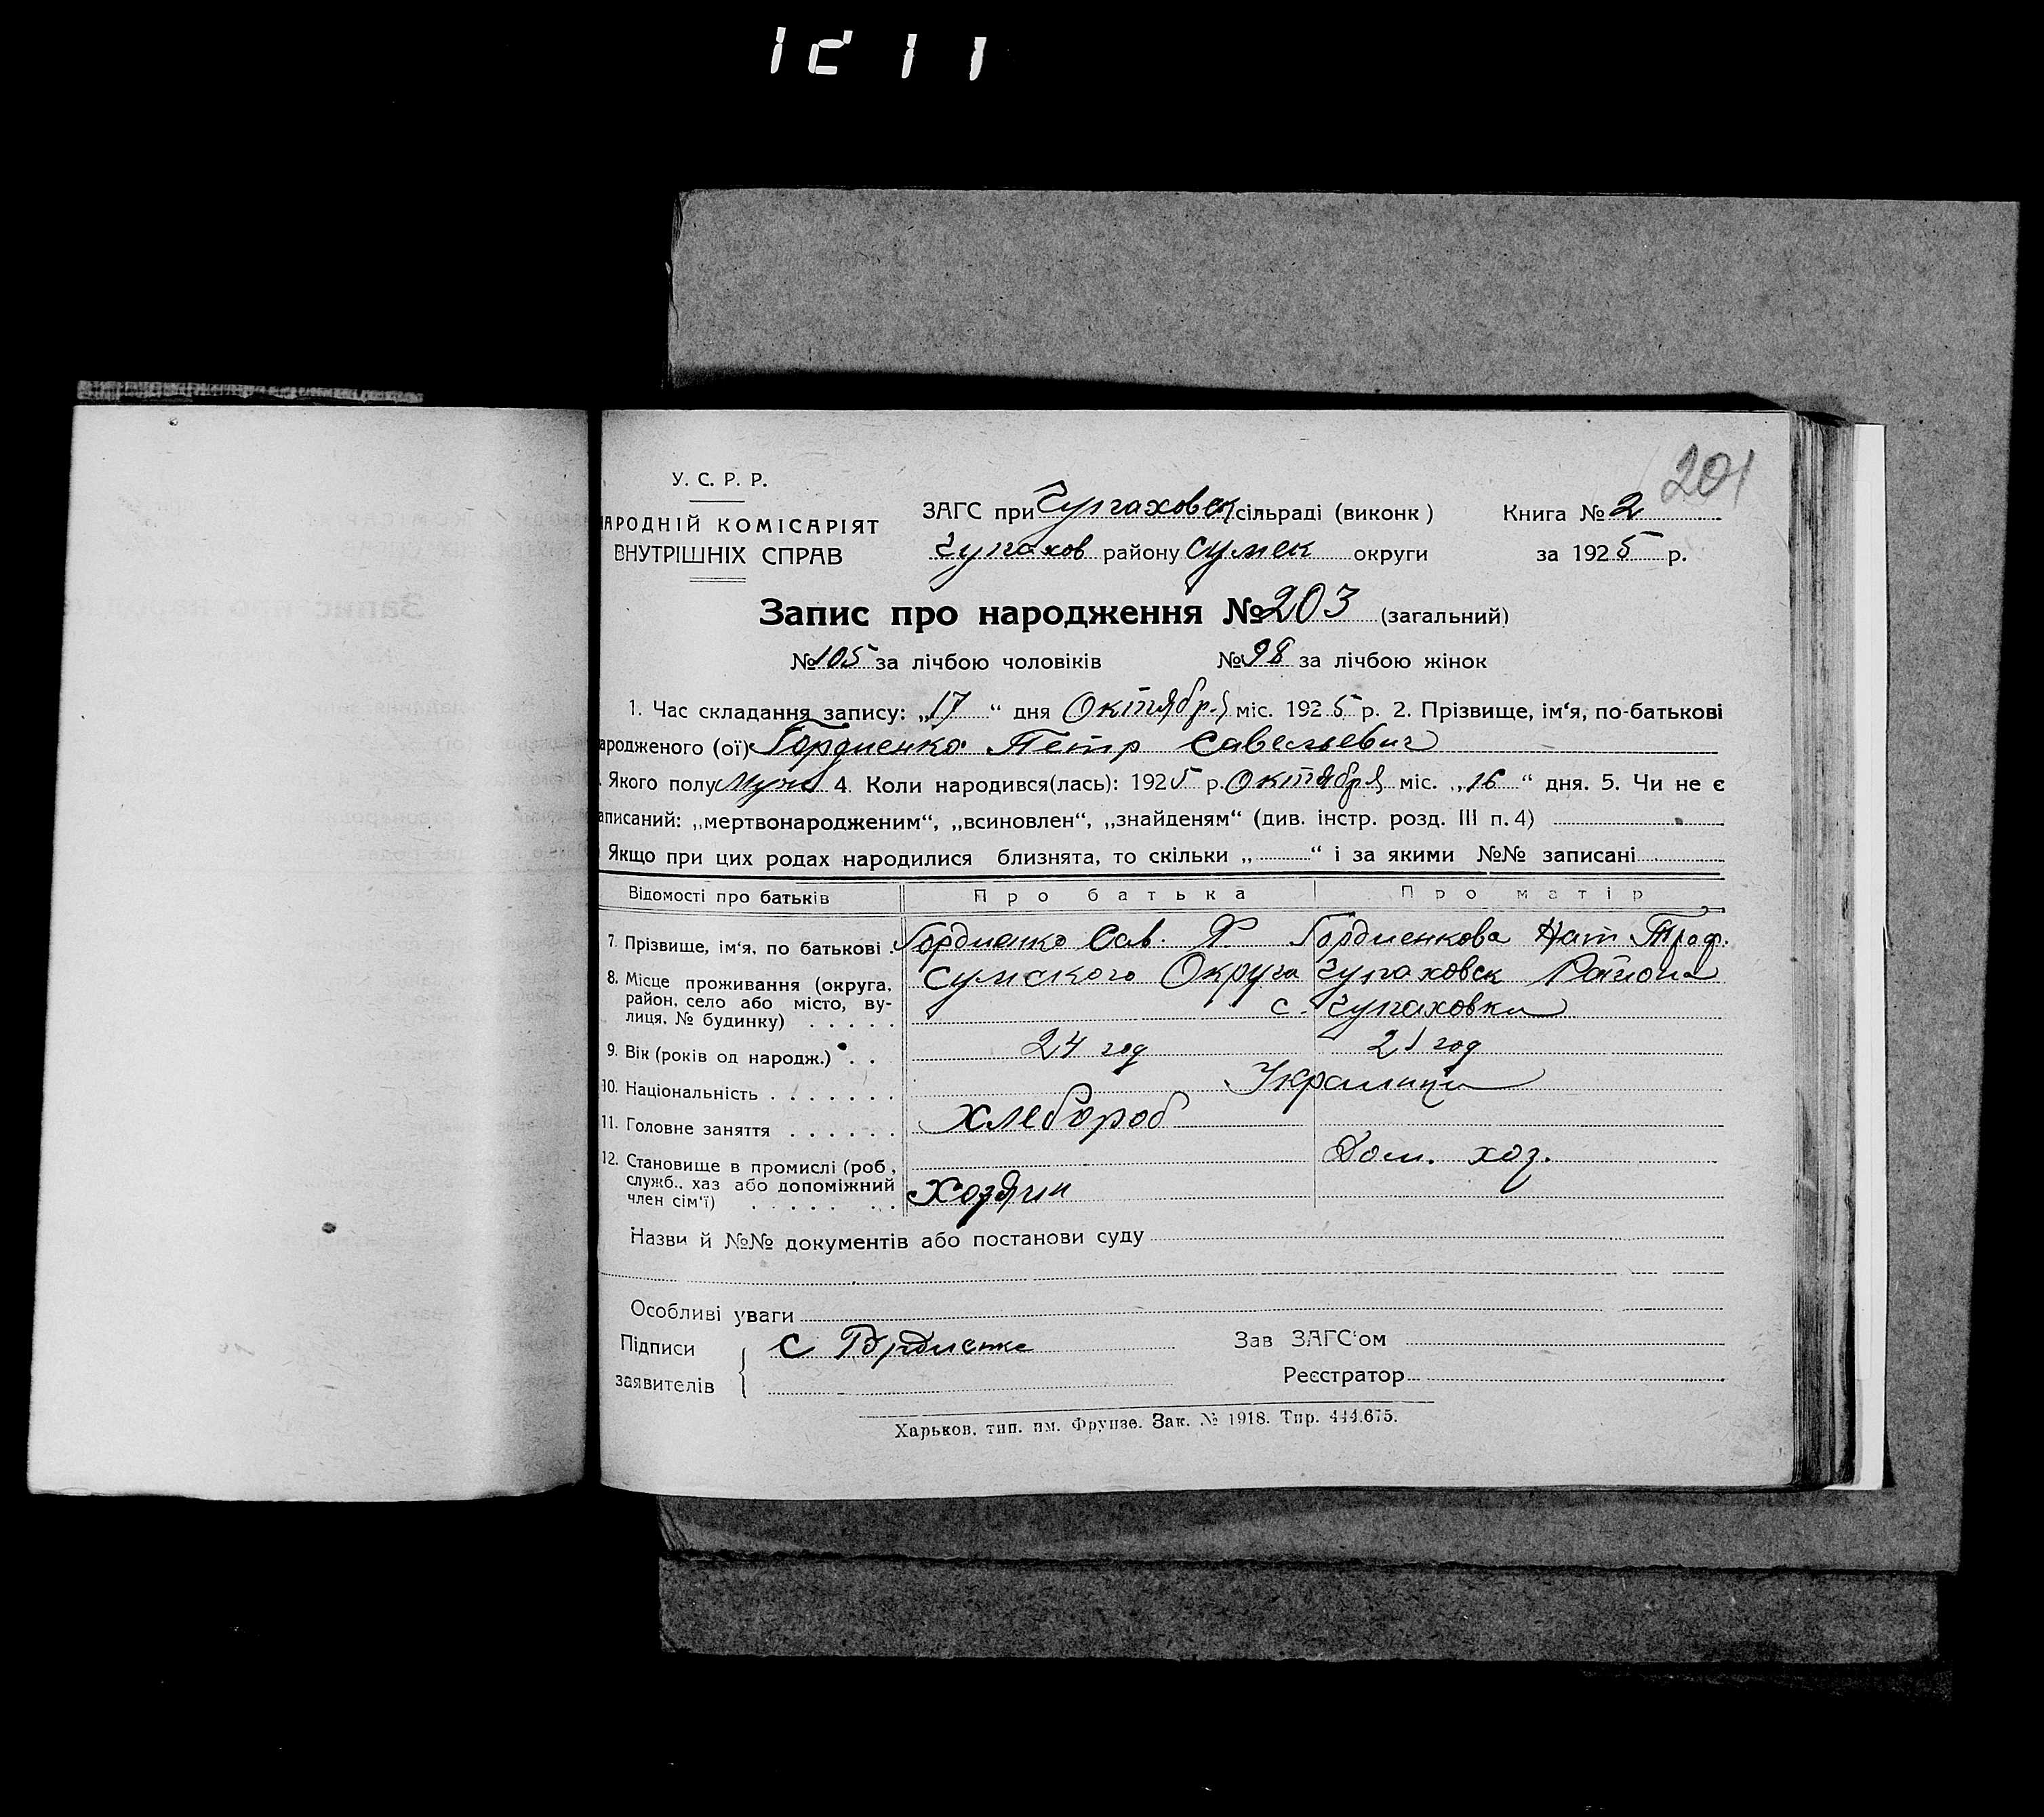 1211
201
У. С. Р. Р.
АРОДНІЙ КОМІСАРІЯТ
ВНУТРІШНІХ СПРАВ
ЗАГС при Чупаховск сільраді (виконк )
Чупахов району Сумск округи
Книга № 2
за 1925 р.
Запис про народження № 203 (загальний)
№ 105 за лічбою чоловіків № 98 за лічбою жінок
1. Час складання запису: „17“ дня Октябр. міс. 1925 р. 2. Прізвище, ім‘я, по-батькові
ародженого (ої) Гордиенко Петр Савельевич
. Якого полу Муж 4. Коли народився(лась): 1925 р. Октября міс. „16“ дня. 5. Чи не є
аписаний: „мертвонародженим“, „всиновлен“, „знайденям“ (див. інстр. розд. III п. 4)
Якщо при цих родах народилися близнята, то скільки „ “ і за якими №№ записані
Відомості про батьків Про батька Про матір
7. Прізвище, ім‘я, по батькові . Гордиенко Сав. Я. Гордиенкова Нат Троф.
8. Місце проживання (округа, район, село або місто, ву-лиця, № будинку) . . . . . Сумского Округа Чупаховск Района
с. Чупаховка
9. Вік (років од народж.) . . 24 год 21 год
10. Національність . . . . . . . Украинци
11. Головне заняття . . . . . . Хлебороб
12. Становище в промислі (роб., служб., хаз або допоміжний член сім‘ї) . . . . . . . Хозяин Дом. хоз.
Назви й №№ документів або постанови суду
Особливі уваги
Підписи заявителів С Гордиенко
Зав ЗАГС‘ом
Реєстратор
Харьков, тип. им. Фрунзе. Зак. № 1918. Тир. 444.675.